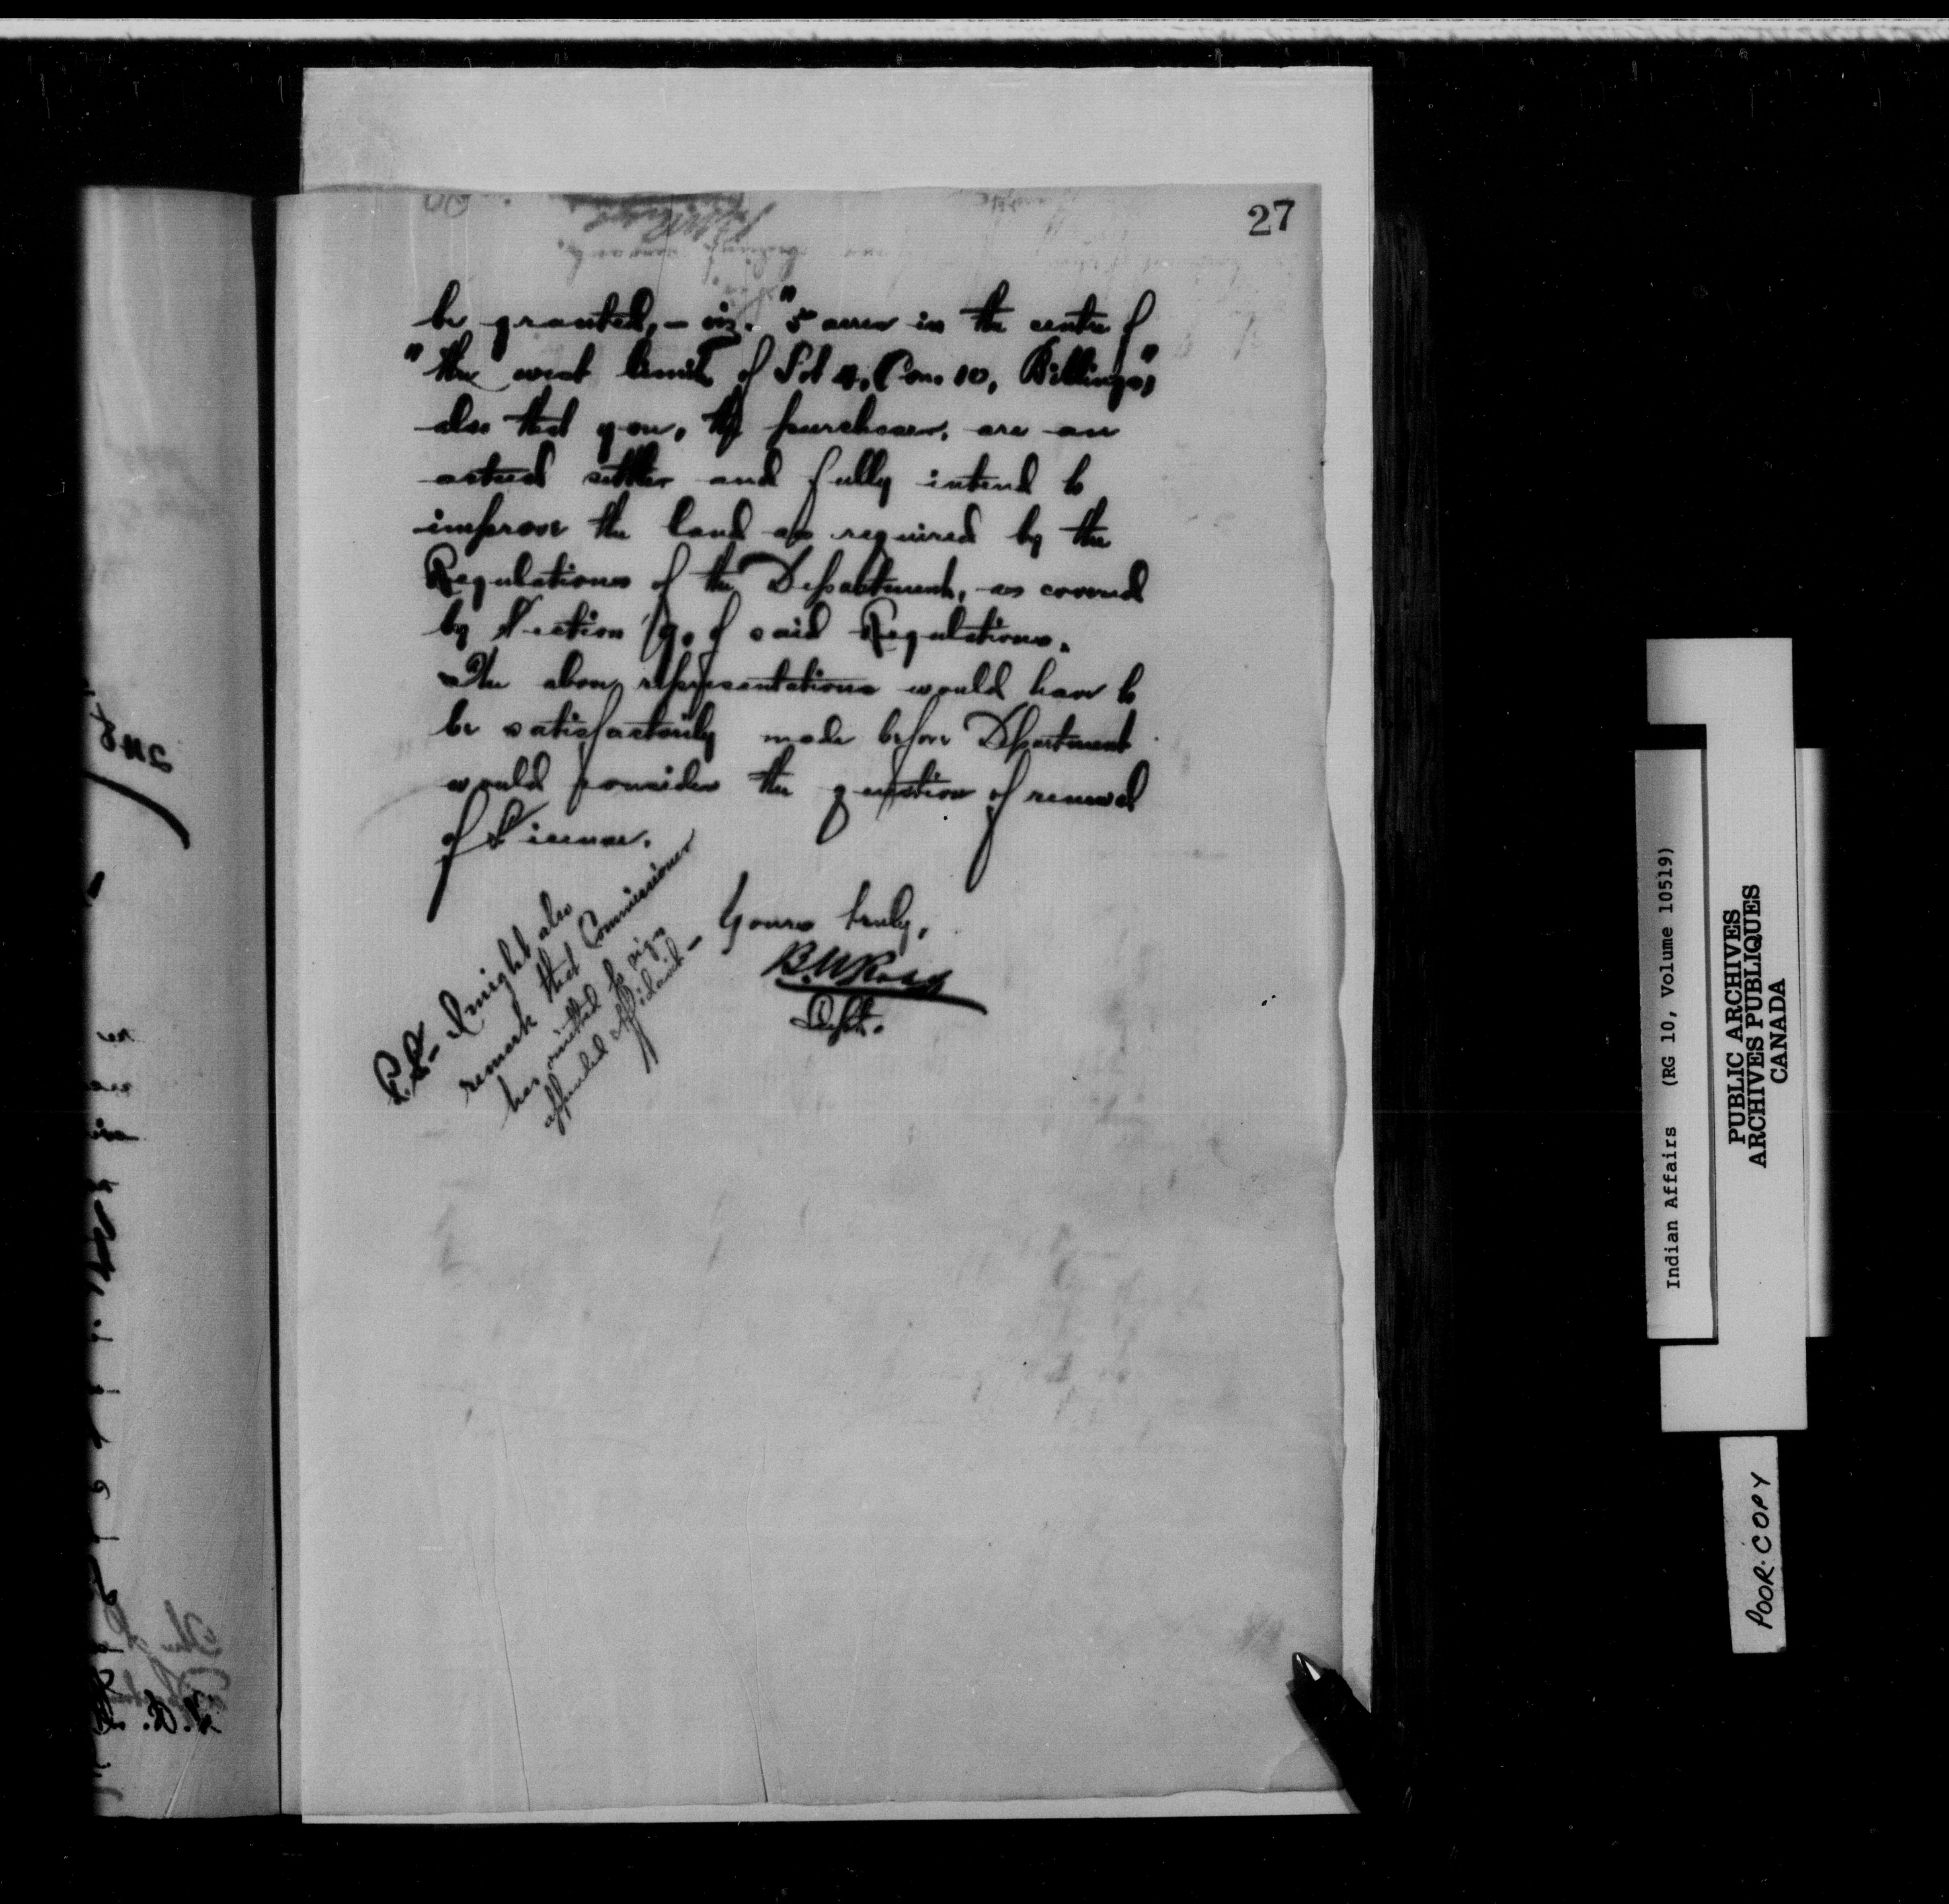 27
be granted, - viz. "5 acres in the centre of
" the west limit of Lot 4, Con. 10, Billings,"
also that you, the purchaser, are an
actual settler and fully intend to
improve the land as required by the
Regulations of the Department, as covered
by Section 9, of said Regulations.
The above representations would have to
be satisfactorily made before Department
would consider the question of renewal
of License.
Yours truly,
B. W. Ross
P.S. - I might also
remark that Commissioner
has omitted to sign
appended affidavit -
Indian Affairs (RG 10, Volume 10519)
PUBLIC ARCHIVES
ARCHIVES PUBLIQUES
CANADA
POOR COPY